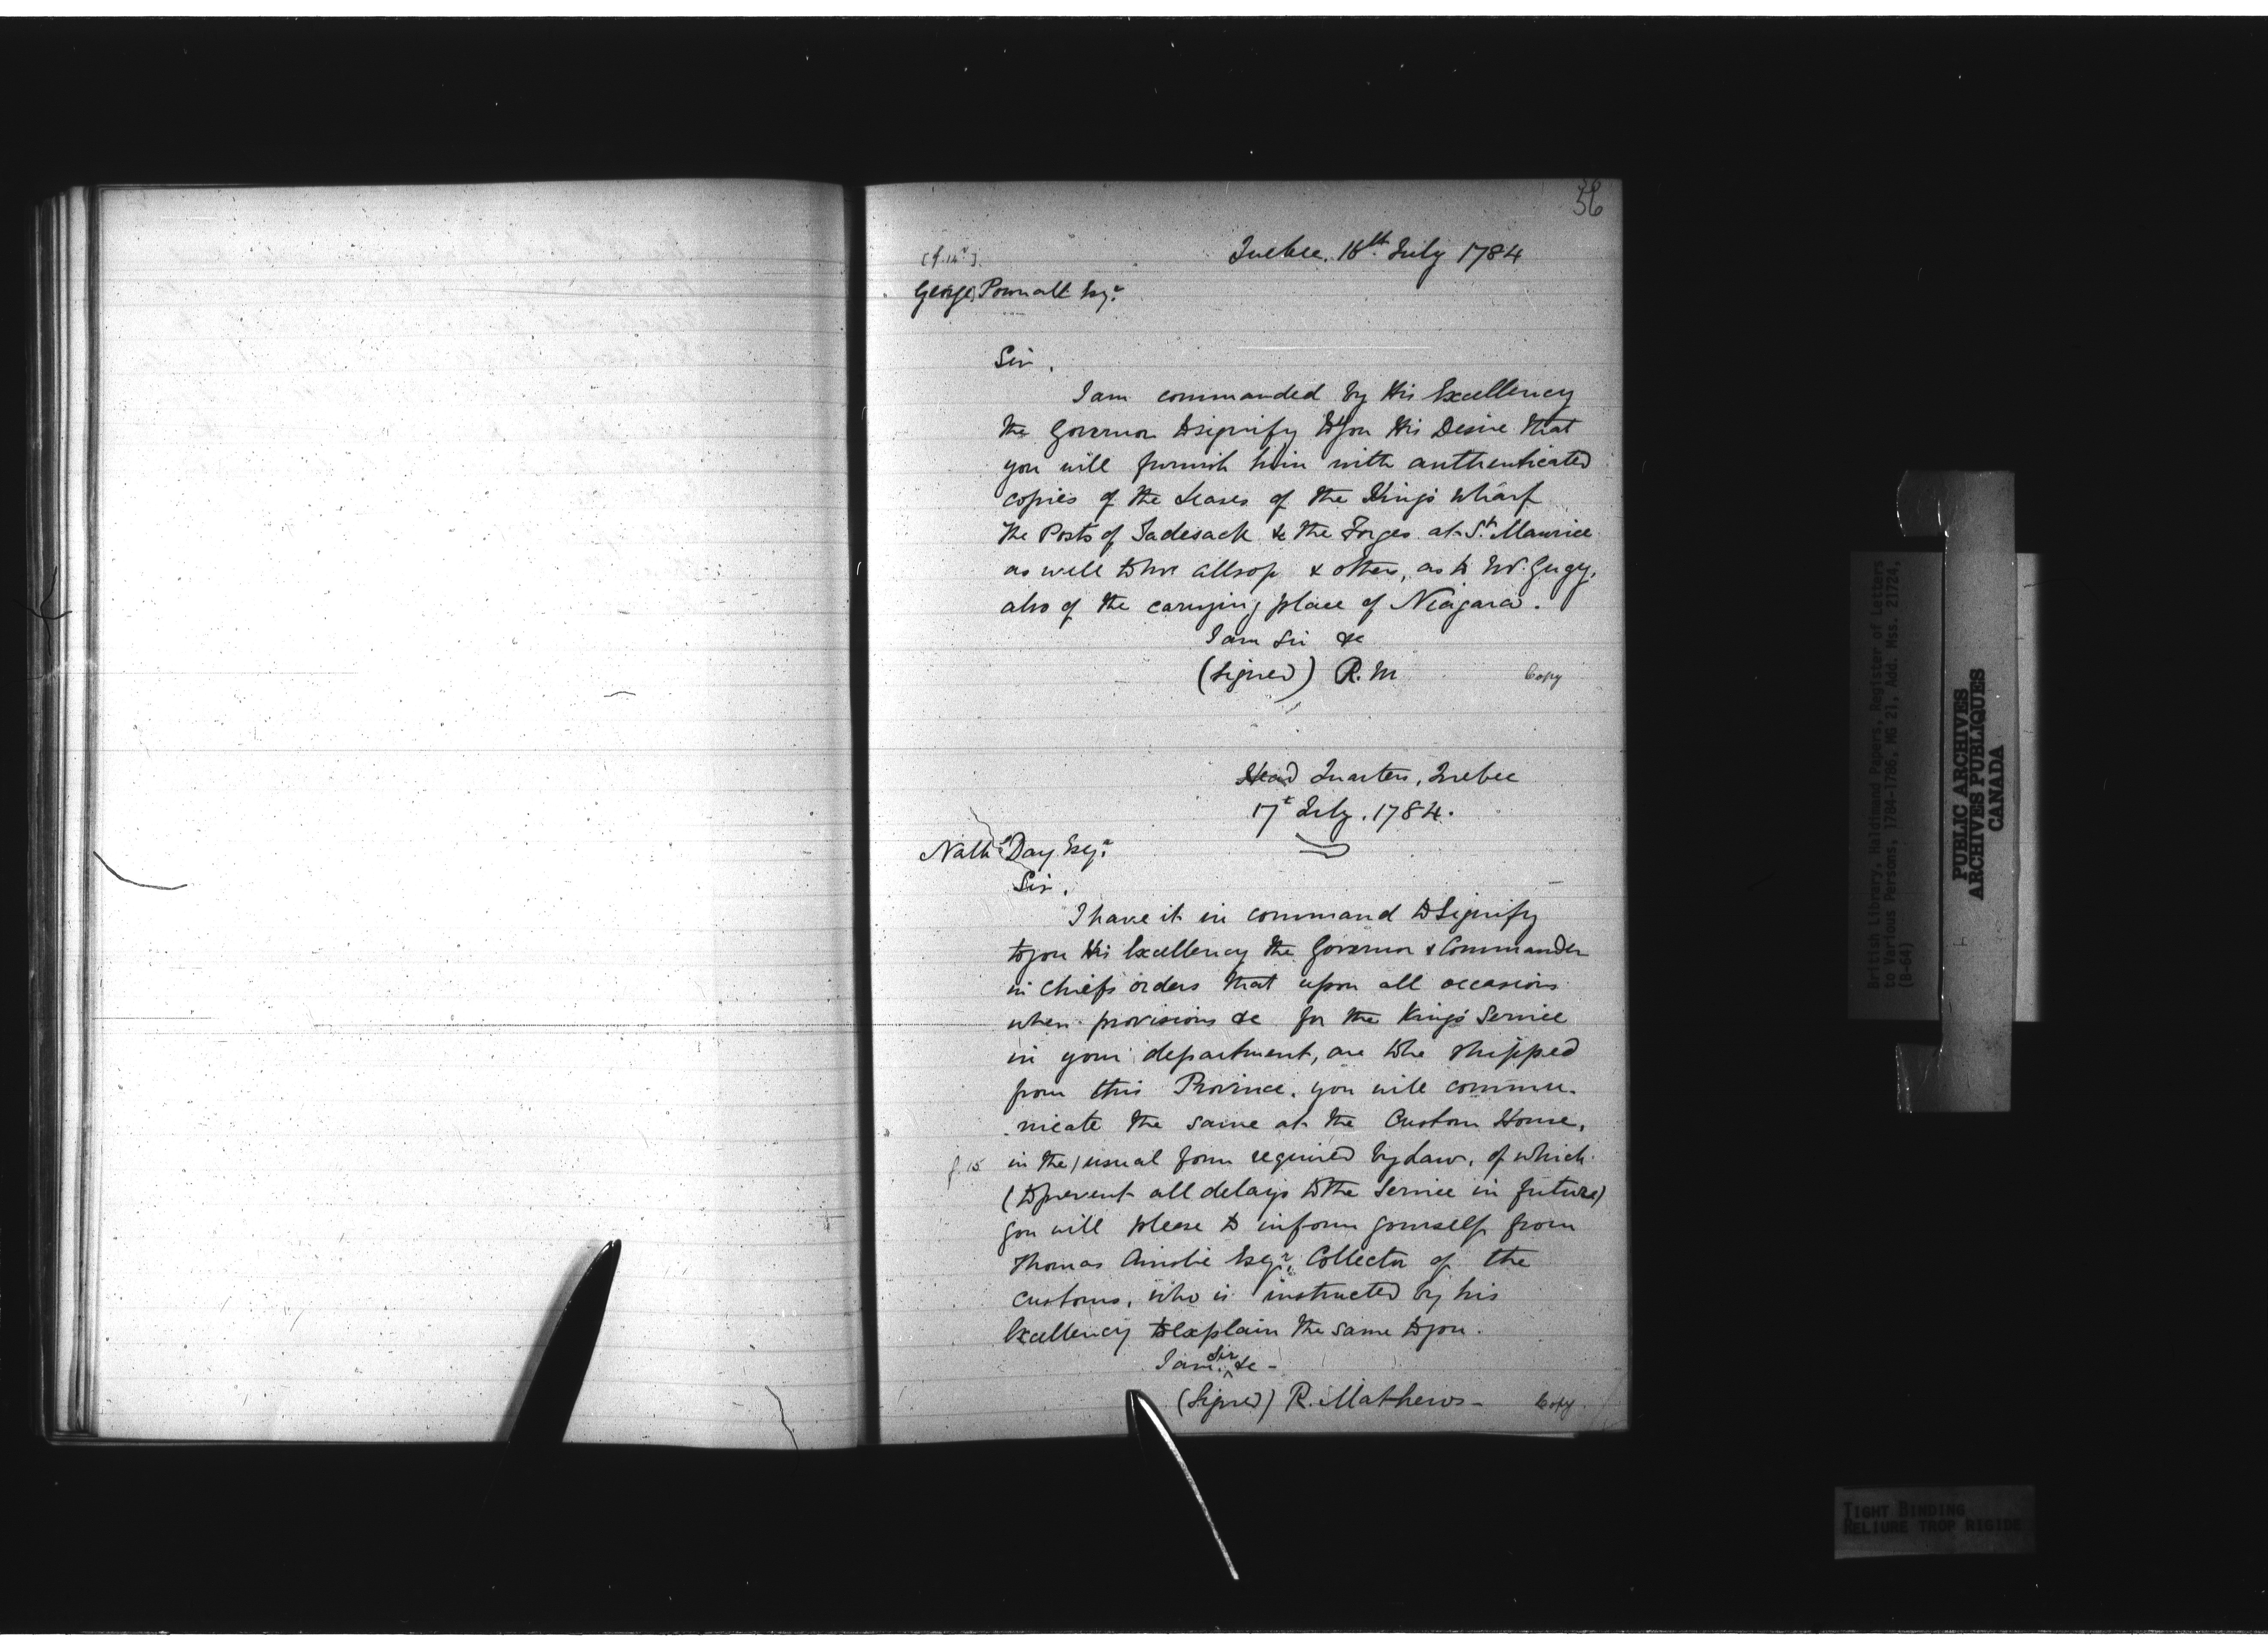 56
Quebec. 16th July 1784
[f. 14b].
George Pownall Esqr.
Sir,
I am commanded by His Excellency
the Governor to signify to you His Desire that
you will furnish him with authenticated
copies of the Leases of the King's Wharf
the Posts of Tadesack & the Forges at St. Maurice
as well to Mr Allsop & others, as to Mr. Gugy,
also of the carrying place of Niagara.
I am Sir &c
(Signed) R. M
Copy
Head Quarters, Quebec
17t July. 1784.
Nathl Day Esqr.
Sir,
I have it in command to Signify
to you His Excellency the Governor & Commander
in Chiefs orders that upon all occasions
when provisions &c for the King's Service
in your department, are to be shipped
from this Province, you will commu-
-nicate the same at the Custom House,
f. 15 in the / usual form required by Law, of which
(to prevent all delays to the Service in future)
you will please to inform yourself from
Thomas Ainslie Esqr., Collector of the
Customs, who is instructed by his
Excellency to explain the same to you.
I am Sir &c -
(Signed) R. Mathews -
Copy
British Library, Haldimand Papers, Register of Letters
to Various Persons, 1784-1786, MG 21, Add. Mss. 21724,
(B-64)
PUBLIC ARCHIVES
ARCHIVES PUBLIQUES
CANADA
TIGHT BINDING
RELIURE TROP RIGIDE